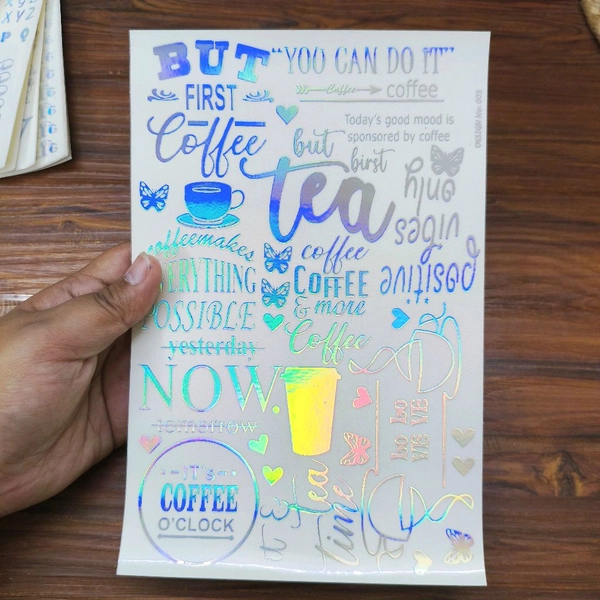 BUT
FIRST
Coffee
"YOU CAN DO IT"
Coffee
coffee
Today's good mood is
sponsored by coffee
but
birst
tea
positive
vibes
only
coffeemakes
EVERYTHING
POSSIBLE
coffee
COFFEE
& more
Coffee
yesterday
NOW.
tomorrow
IT'S
COFFEE
O'CLOCK
tea
time
X Y Z
P Q